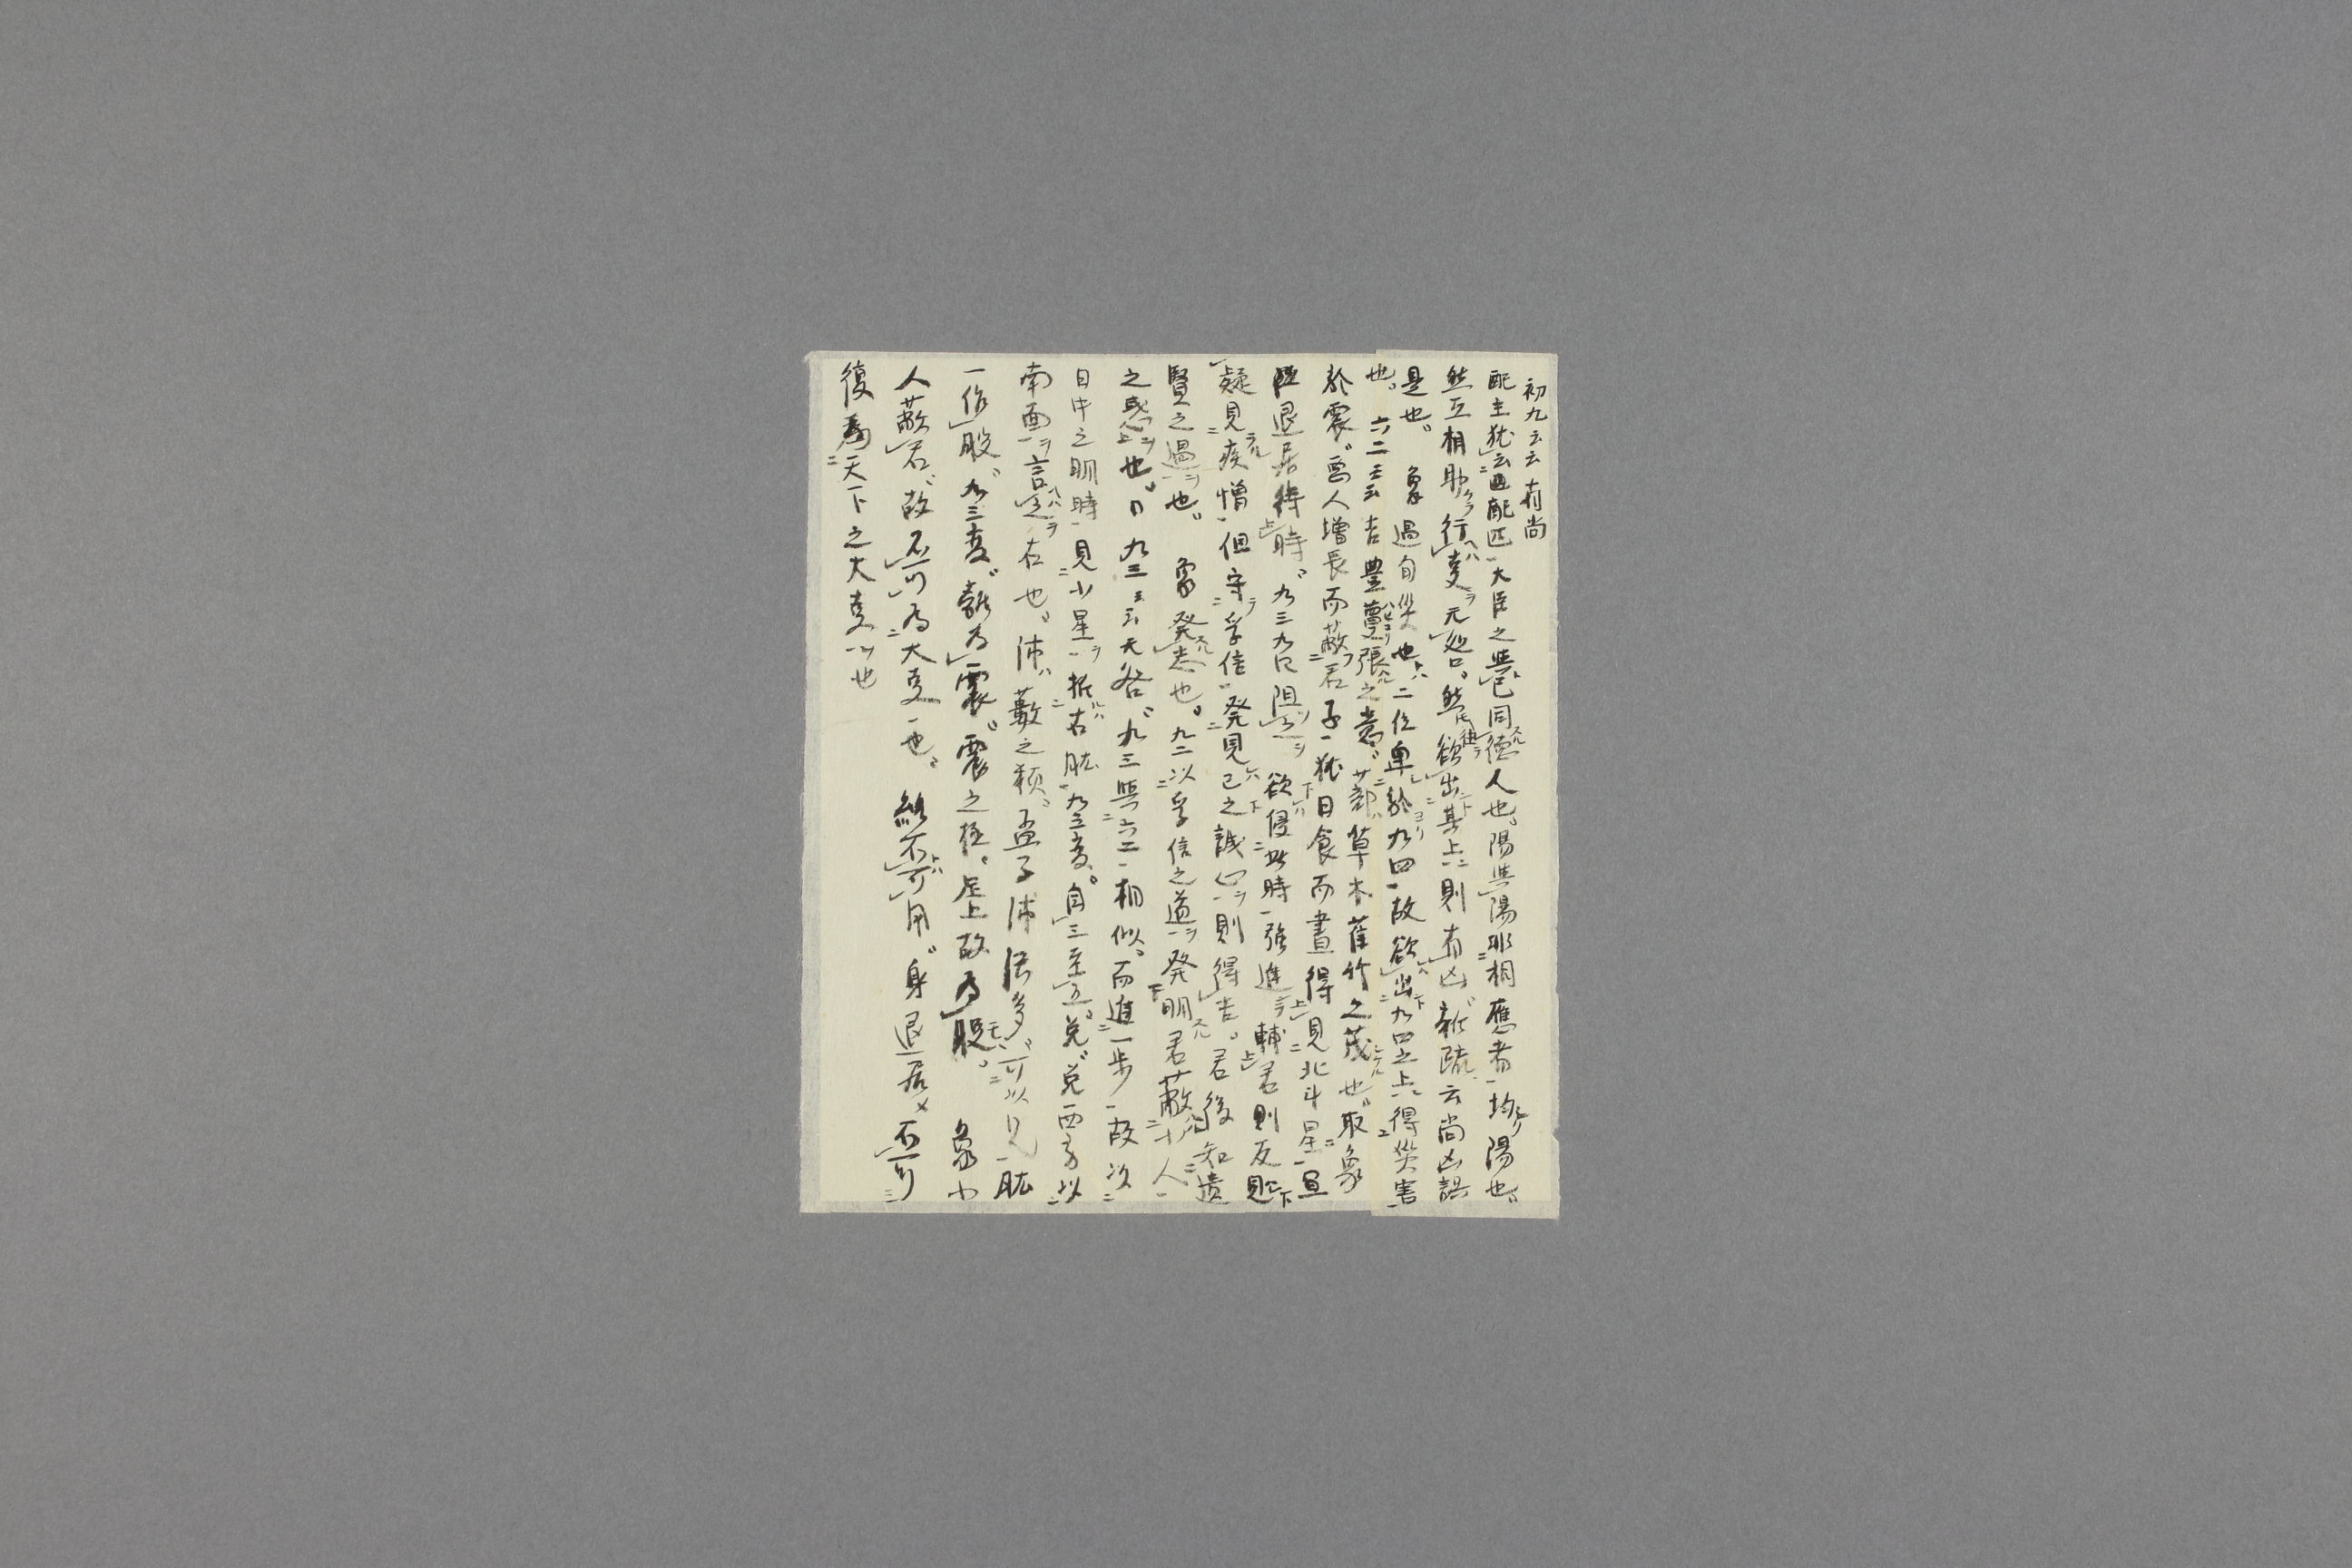 初九云云有尚
配主犹云匹配匹大臣之與己同德人也陽與陽非相應者均陽也
然互相助行㕝无咎然欲出其上則有凶雜疏云尚凶誤
是也 象過旬災也二位卑於九四故欲出九四之上得災害
也 六二云云吉豊蔓張之意蔀草木萑竹之茂也取象
於震惡人增長而蔽君子犹日食而晝得見北斗星宜
退居待時九三九四阻之欲侵此時强進輔君則反
疑見疾憎但守孚信発見己之誠心則得吉君後知遺
賢之過也 象発志也九二以孚信之道発明君蔽小人
之惑也 九三云云无咎九三與六二相似而進一步故次
日中之明時見小星折右肱九三変自三至五兌兌西方以
南面言之右也沛藪之類孟子沛沢多可以見肱
一作股九三変雜为震震之極足上故为股 象小
人蔽君故不可为大㕝也 終不可用身退居不可
復為天下之大㕝也